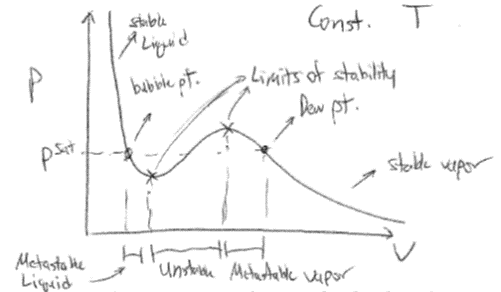 Const. T
stable
Liquid
P
bubble pt.
Limits of stability
Dew pt.
Psat
stable vapor
V
Metastable
Liquid
Unstable
Metastable vapor